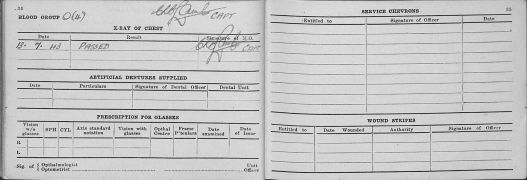 34
BLOOD GROUP O(4) CAPT
X-RAY OF CHEST
Date Result Signature of M.O.
13. 7. 43 PASSED CAPT
ARTIFICIAL DENTURES SUPPLIED
Date Particulars Signature of Dental Officer Dental Unit
PRESCRIPTION FOR GLASSES
Vision w/o glasses SPH CYL Axis standard notation Vision with glasses Opthal Centre Frame P'ticulars Date examined Date of Issue
R.
L.
Sig. of { Opthalmologist Unit
{ Optometrist Officer
35
SERVICE CHEVRONS
Entitled to Signature of Officer Date
WOUND STRIPES
Entitled to Date Wounded Authority Signature of Officer